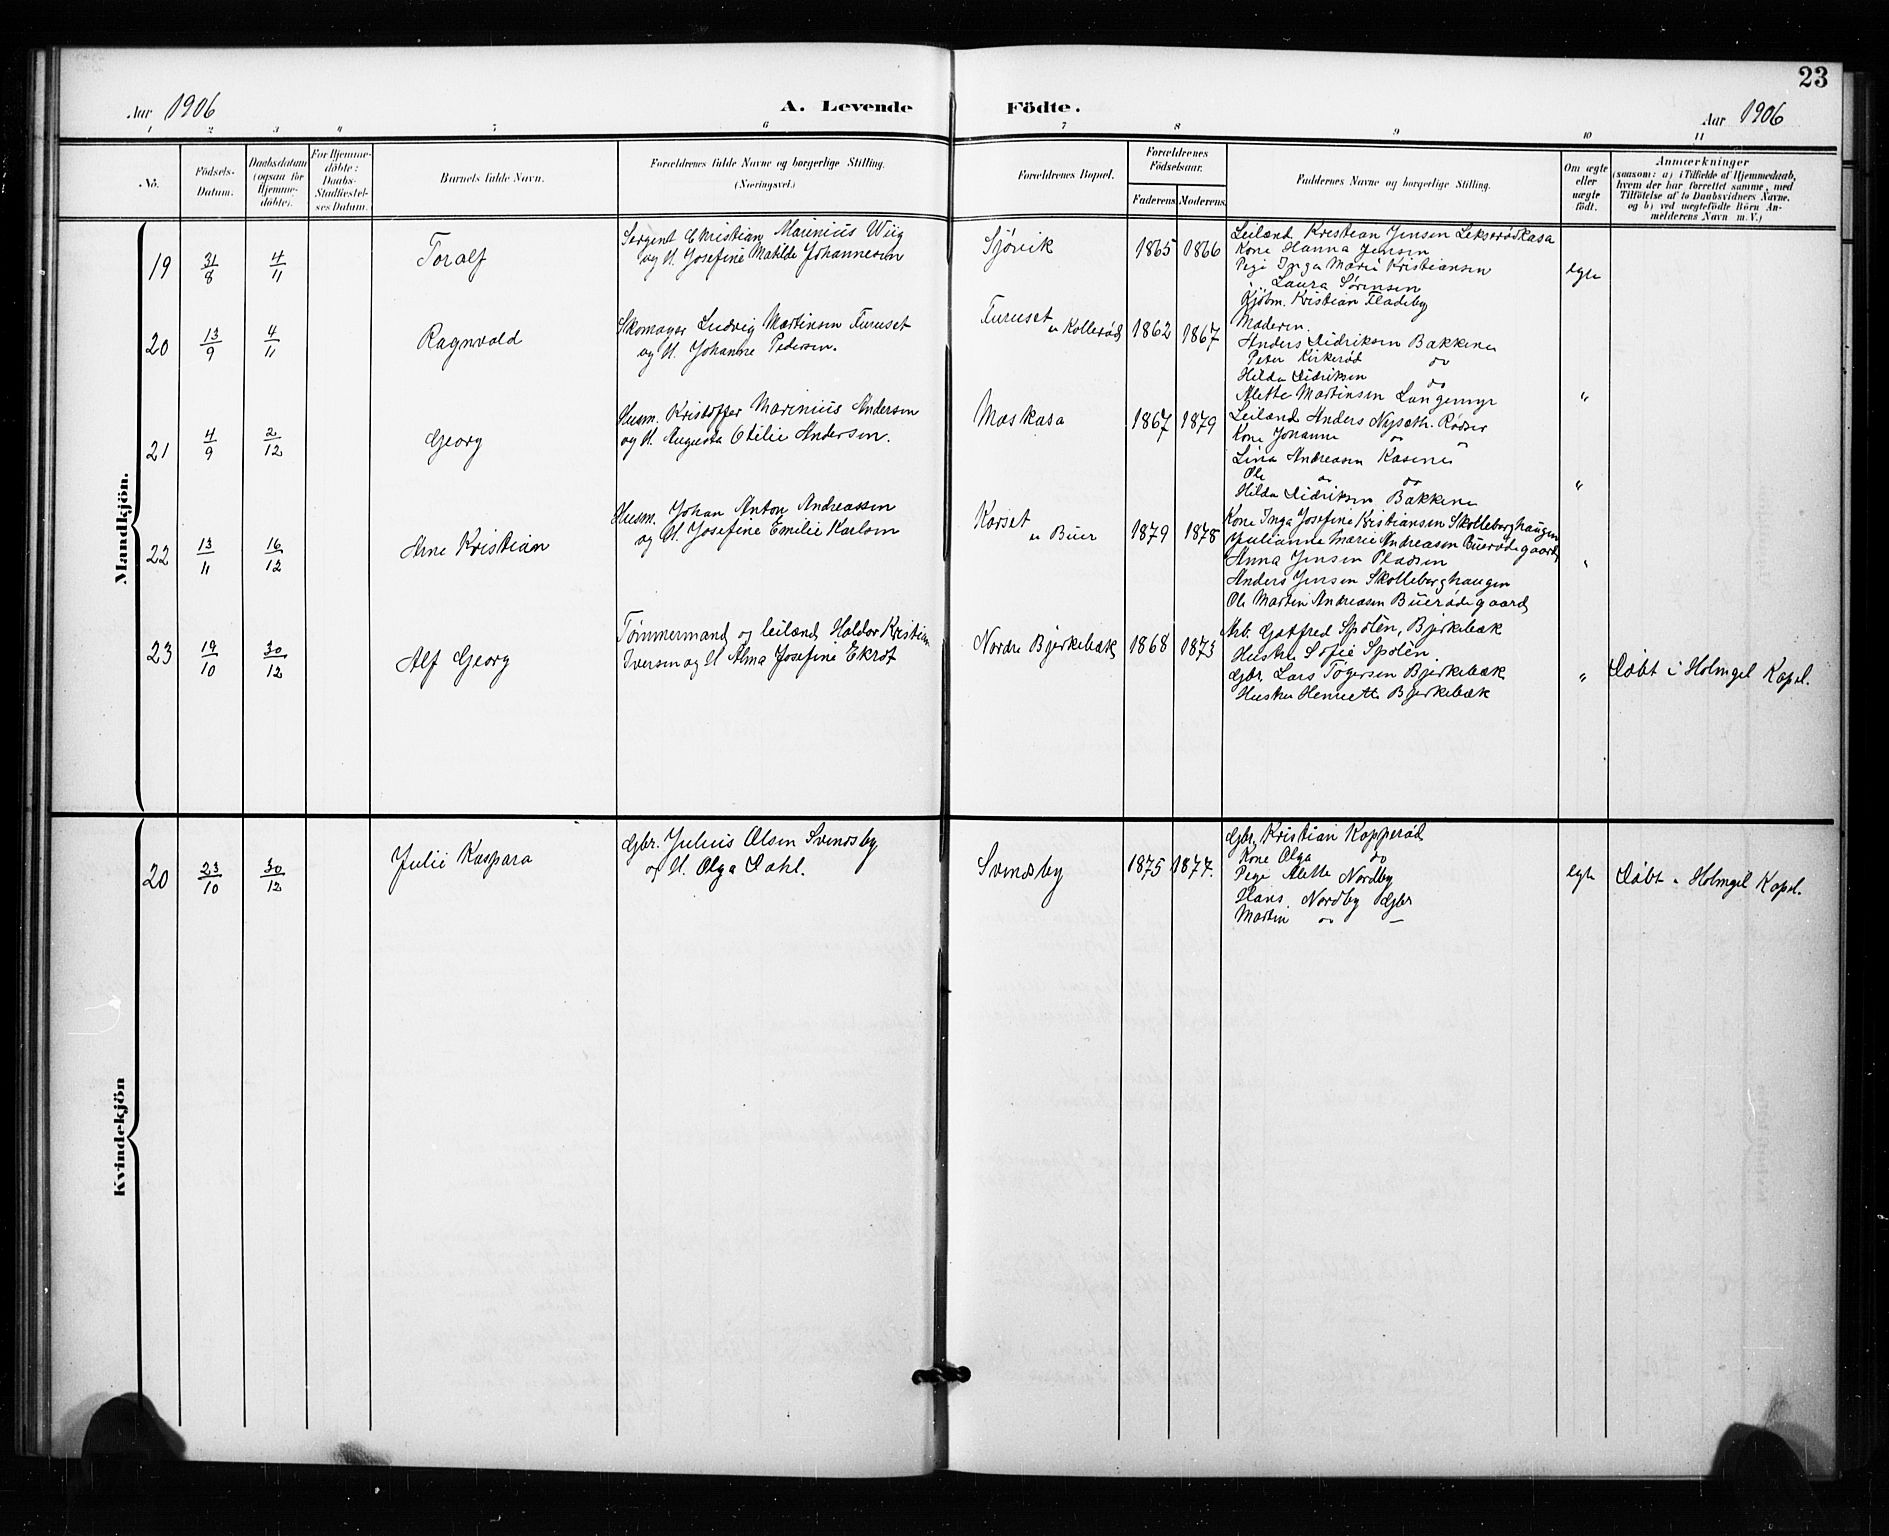 23
Aar 1906
A. Levende Födte.
Aar 1906
1 2 3 4 5 6 7 8 9 10 11
No.
Födsels-Datum.
Daabsdatum (ogsaa for Hjemme-döbte).
For Hjemme-döbte: Daabs-Stadfæstel-ses Datum.
Barnets fulde Navn.
Forældrenes fulde Navne og borgerlige Stilling.
(Næringsvei.)
Forældrenes Bopæl.
Forældrenes Födselsaar.
Faderens Moderens
Faddernes Navne og borgerlige Stilling.
Om ægte eller uægte födt.
Anmærkninger
(saasom: a) i Tilfælde af Hjemmedaab, hvem der har forrettet samme, med Tilföielse af to Daabsvidners Navne, og b) ved uægtefödte Börn An-melderens Navn m. V.)
Mandkjön.
19 31/8 4/11 Toralf
Sergent Christian Marinius Wiig
og H. Josefine Matilde Johannesen
Sjøvik 1865 1866
Leilænd Kristian Jensen Lekserødkasa
Kone Hanna Jensen
Pige Inga Marie Kristiansen
Laura Sørensen
Kjøbm. Kristian Fladeby
egte
20 13/9 4/11 Ragnvald
Skomager Ludvig Martinsen Furuset
og H. Johanne Pedersen.
Furuset u Kollerød 1862 1867
Moderen.
Anders Didriksen Bakkene
Peter Kirkerød do
Hilda Didriksen do
Alette Martinsen Langemyr
"
21 4/9 2/12 Georg
Husm. Kristoffer Marinius Andersen
og H. Augusta Otilie Andersen.
Moskasa 1867 1879
Leilænd Anders Nyseth. Rødser
Kone Johanne " "
Lina Andreasen Kasene
Ole do do
Hilda Didriksen Bakkene
"
22 13/11 16/12 Arne Kristian
Husm. Johan Anton Andreassen
og H. Josefine Emilie Karlsen
Korset u Buer 1879 1878
Kone Inga Josefine Kristiansen Skolleborghaugen
Julianne Marie Andreasen Buerødegaard
Anna Jensen Pladsen
Anders Jensen Skolleborghaugen
Ole Martin Andreasen Buerødegaard
"
23 19/10 30/12 Alf Georg
Tømmermand og leilænd Haldor Kristian
Iversen og H Alma Josefine Ekrot
Nordre Bjerkebæk 1868 1873
Arb. Gotfred Spolèn, Bjerkebæk
Hustru Sofie Spolèn
Gbr. Lars Tøgersen Bjerkebæk
Hustru Henriette Bjerkebæk
" Døbt i Holmgil Kapel.
Kvindekjön
20 23/10 30/12 Julie Kaspara
Gbr. Julius Olsen Svendsby
og H. Olga Dahl.
Svendsby 1875 1877.
Gbr. Kristian Kopperød
Kone Olga do
Pige Alette Nordby
Hans Nordby Gbr
Martin do —
egte Døbt i Holmgil Kapel.